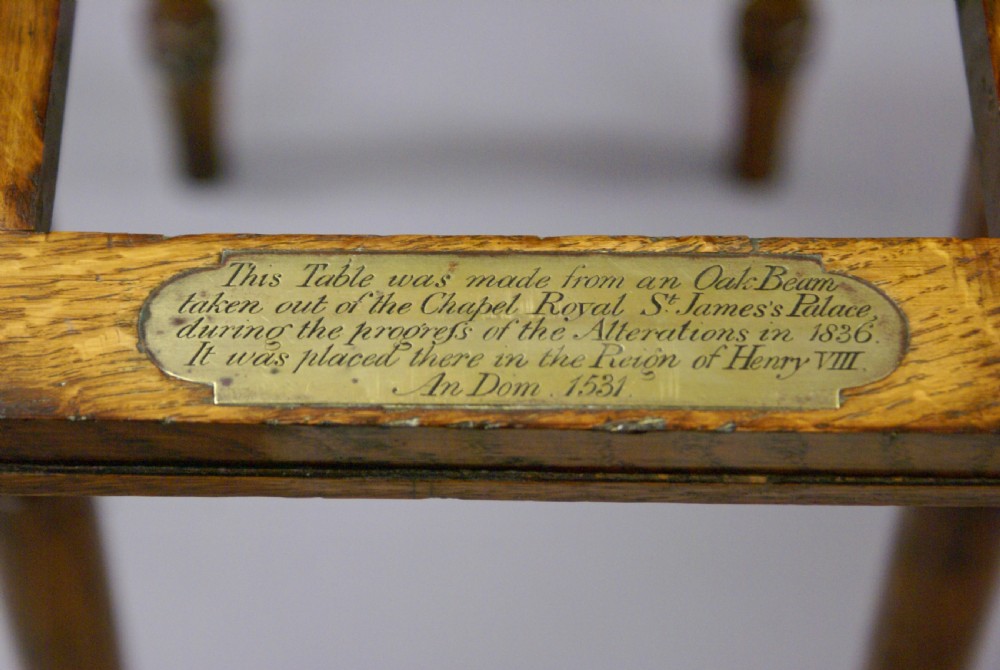 This Table was made from an Oak Beam
taken out of the Chapel Royal St. James's Palace,
during the progreſs of the Alterations in 1836.
It was placed there in the Reign of Henry VIII.
An Dom. 1531.